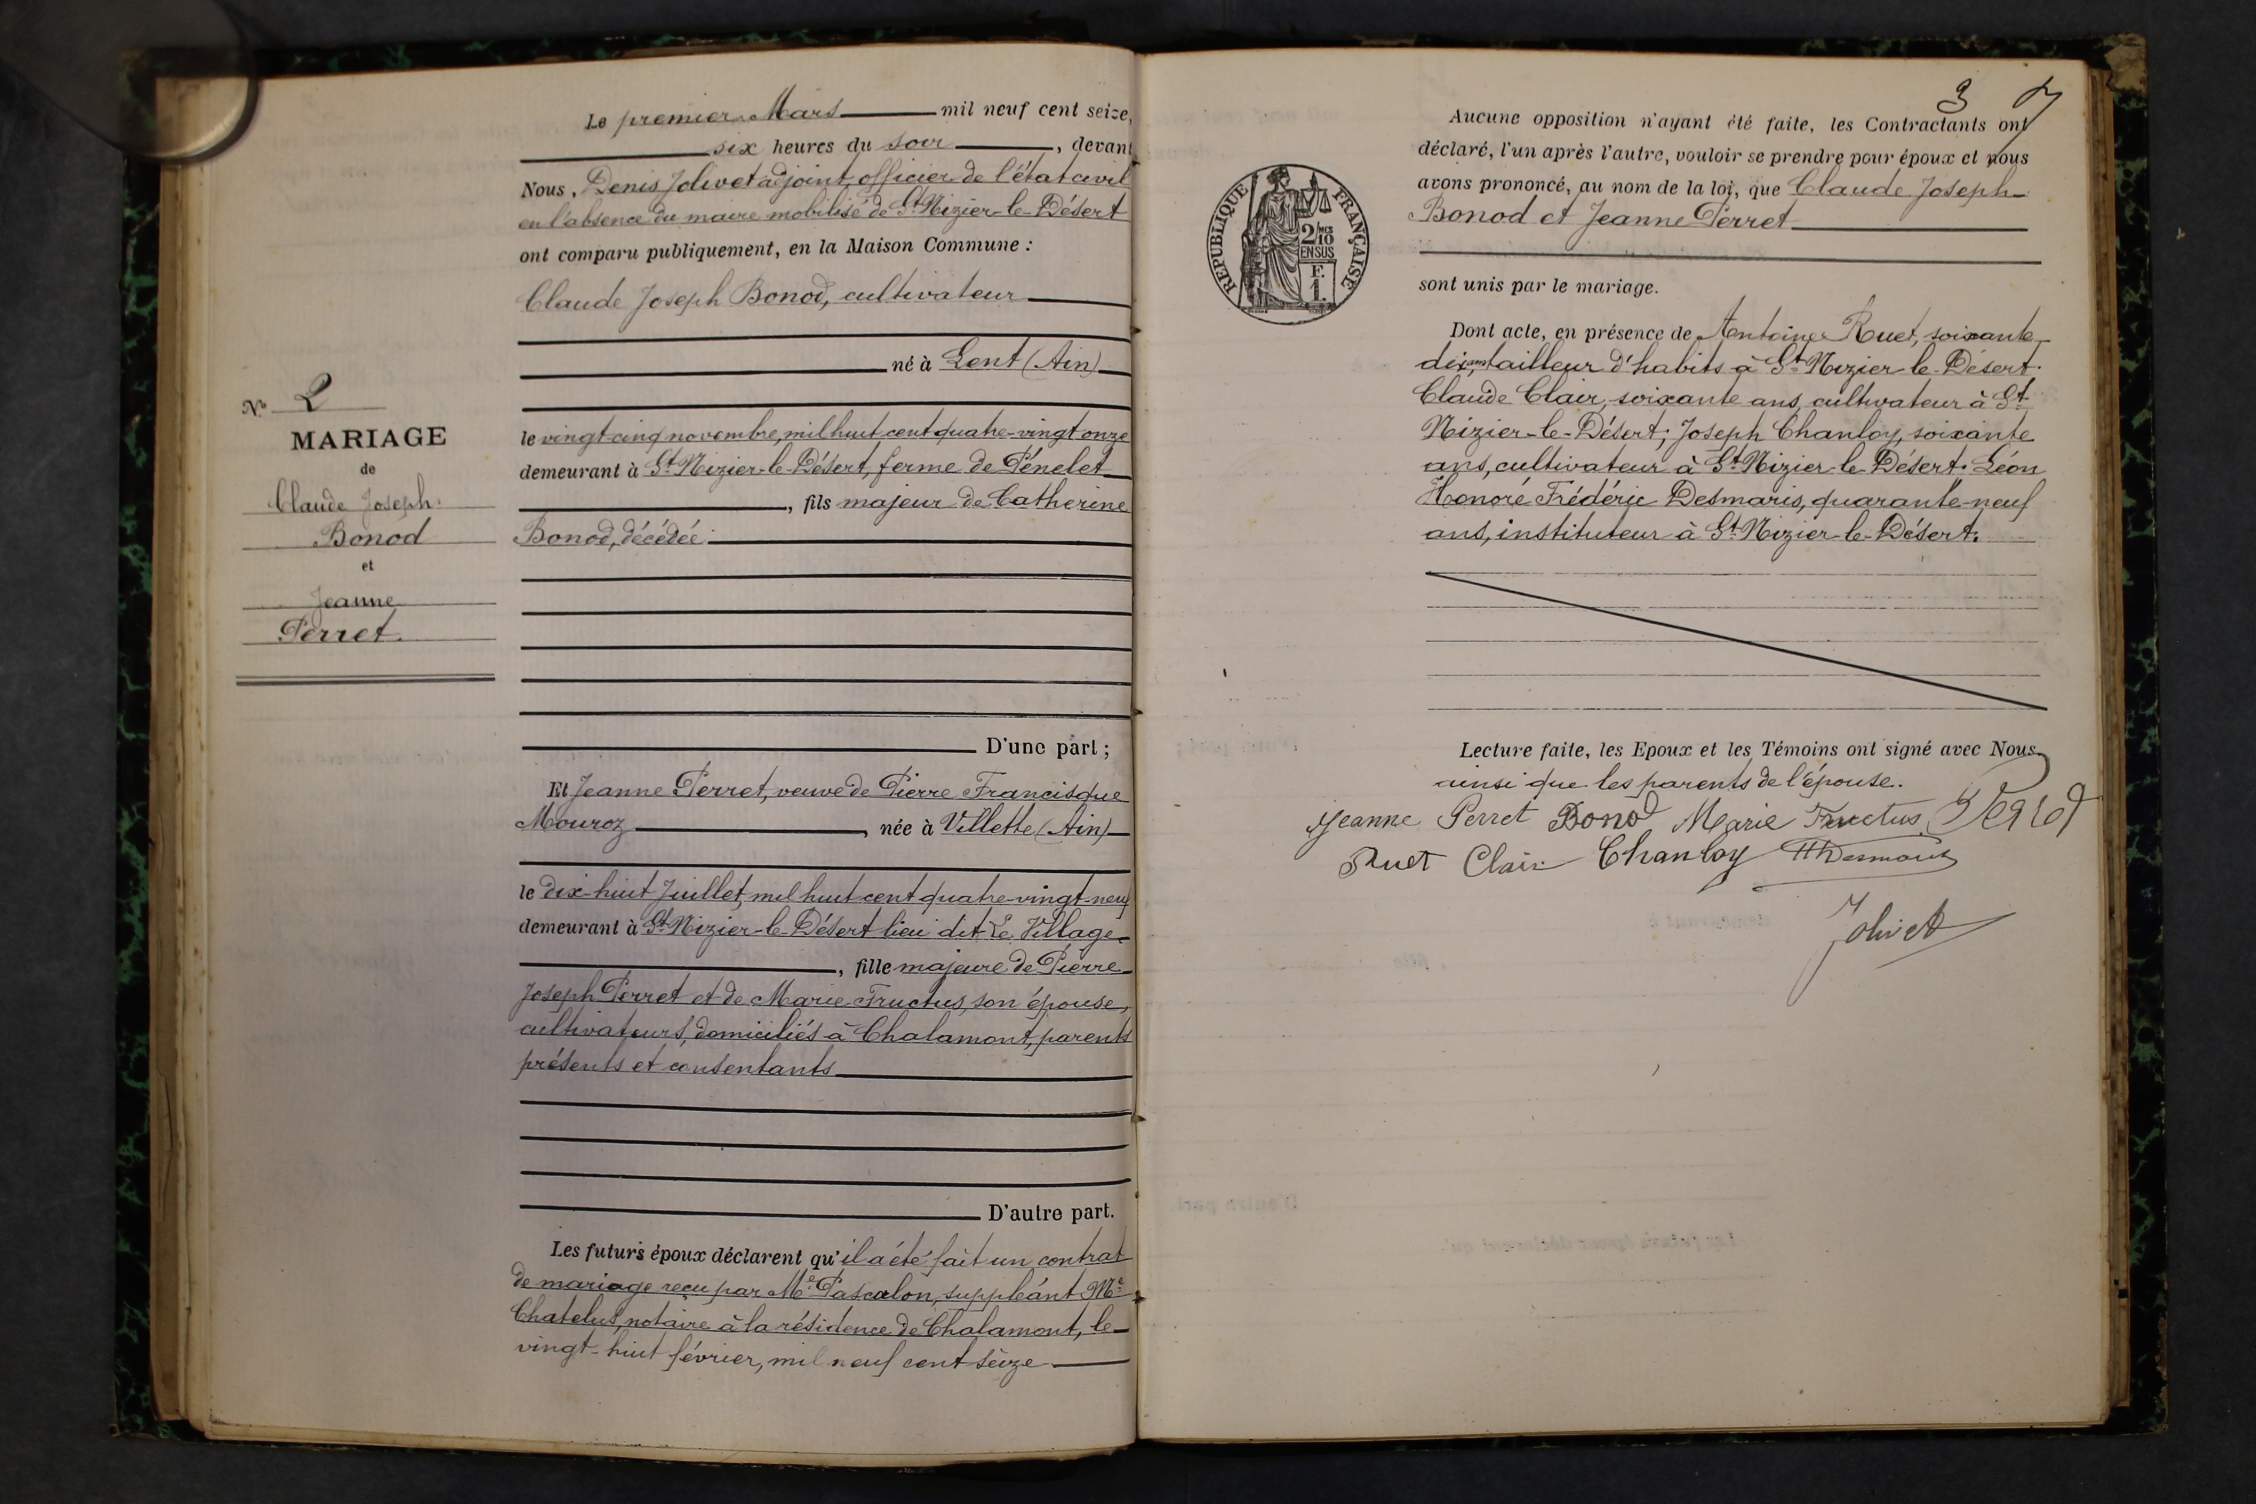 Le premier Mars mil neuf cent seize,
six heures du soir, devant
Nous, Denis Jolivet adjoint, officier de l'état civil
en l'absence du maire mobilisé de St Nizier-le-Désert
ont comparu publiquement, en la Maison Commune :
Claude Joseph Bonod, cultivateur
né à Lent (Ain)
le vingt-cinq novembre, mil huit cent quatre-vingt onze
demeurant à St Nizier-le-Désert, ferme de Pénelet
, fils majeur de Catherine
Bonod, décédée
D'une part ;
Et Jeanne Perret, veuve de Pierre Francisque
Mouroz, née à Villette (Ain)
le dix-huit Juillet, mil huit cent quatre-vingt-neuf
demeurant à St Nizier-le-Désert lieu dit Le Village
, fille majeure de Pierre
Joseph Perret et de Marie Fructus, son épouse,
cultivateurs, domiciliés à Chalamont, parents
présents et consentants
D'autre part.
Les futurs époux déclarent qu'il a été fait un contrat
de mariage reçu par Me Pascalon, suppléant Me
Chatelus, notaire à la résidence de Chalamont, le
vingt-huit février, mil neuf cent seize
No 2
MARIAGE
de
Claude Joseph
Bonod
et
Jeanne
Perret
3
Aucune opposition n'ayant été faite, les Contractants ont
déclaré, l'un après l'autre, vouloir se prendre pour époux et nous
avons prononcé, au nom de la loi, que Claude Joseph
Bonod et Jeanne Perret
sont unis par le mariage.
RÉPUBLIQUE FRANÇAISE
2/10 MES
EN SUS
F.
1.
Dont acte, en présence de Antoine Ruet, soixante
dix ans, tailleur d'habits à St Nizier-le-Désert.
Claude Clair, soixante ans, cultivateur à St
Nizier-le-Désert; Joseph Chanloy, soixante
ans, cultivateur à St Nizier-le-Désert. Léon
Honoré Frédéric Desmaris, quarante-neuf
ans, instituteur à St Nizier-le-Désert.
Lecture faite, les Epoux et les Témoins ont signé avec Nous
ainsi que les parents de l'épouse.
Jeanne Perret Bonod Marie Fructus Perret
Ruet Clair Chanloy HDesmaris
Jolivet